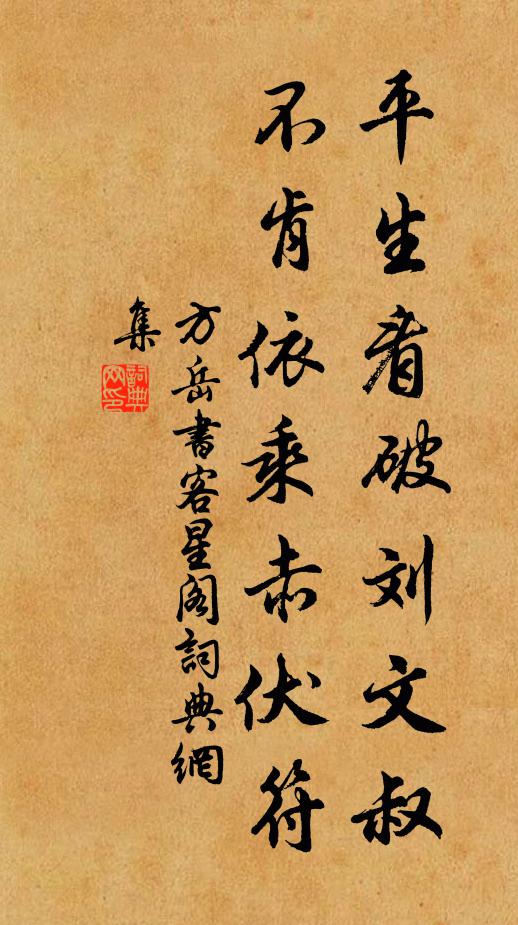 平生看破刘文叔
不肯依乘赤伏符
方岳書客星阁詞典網
集
詞典
网印